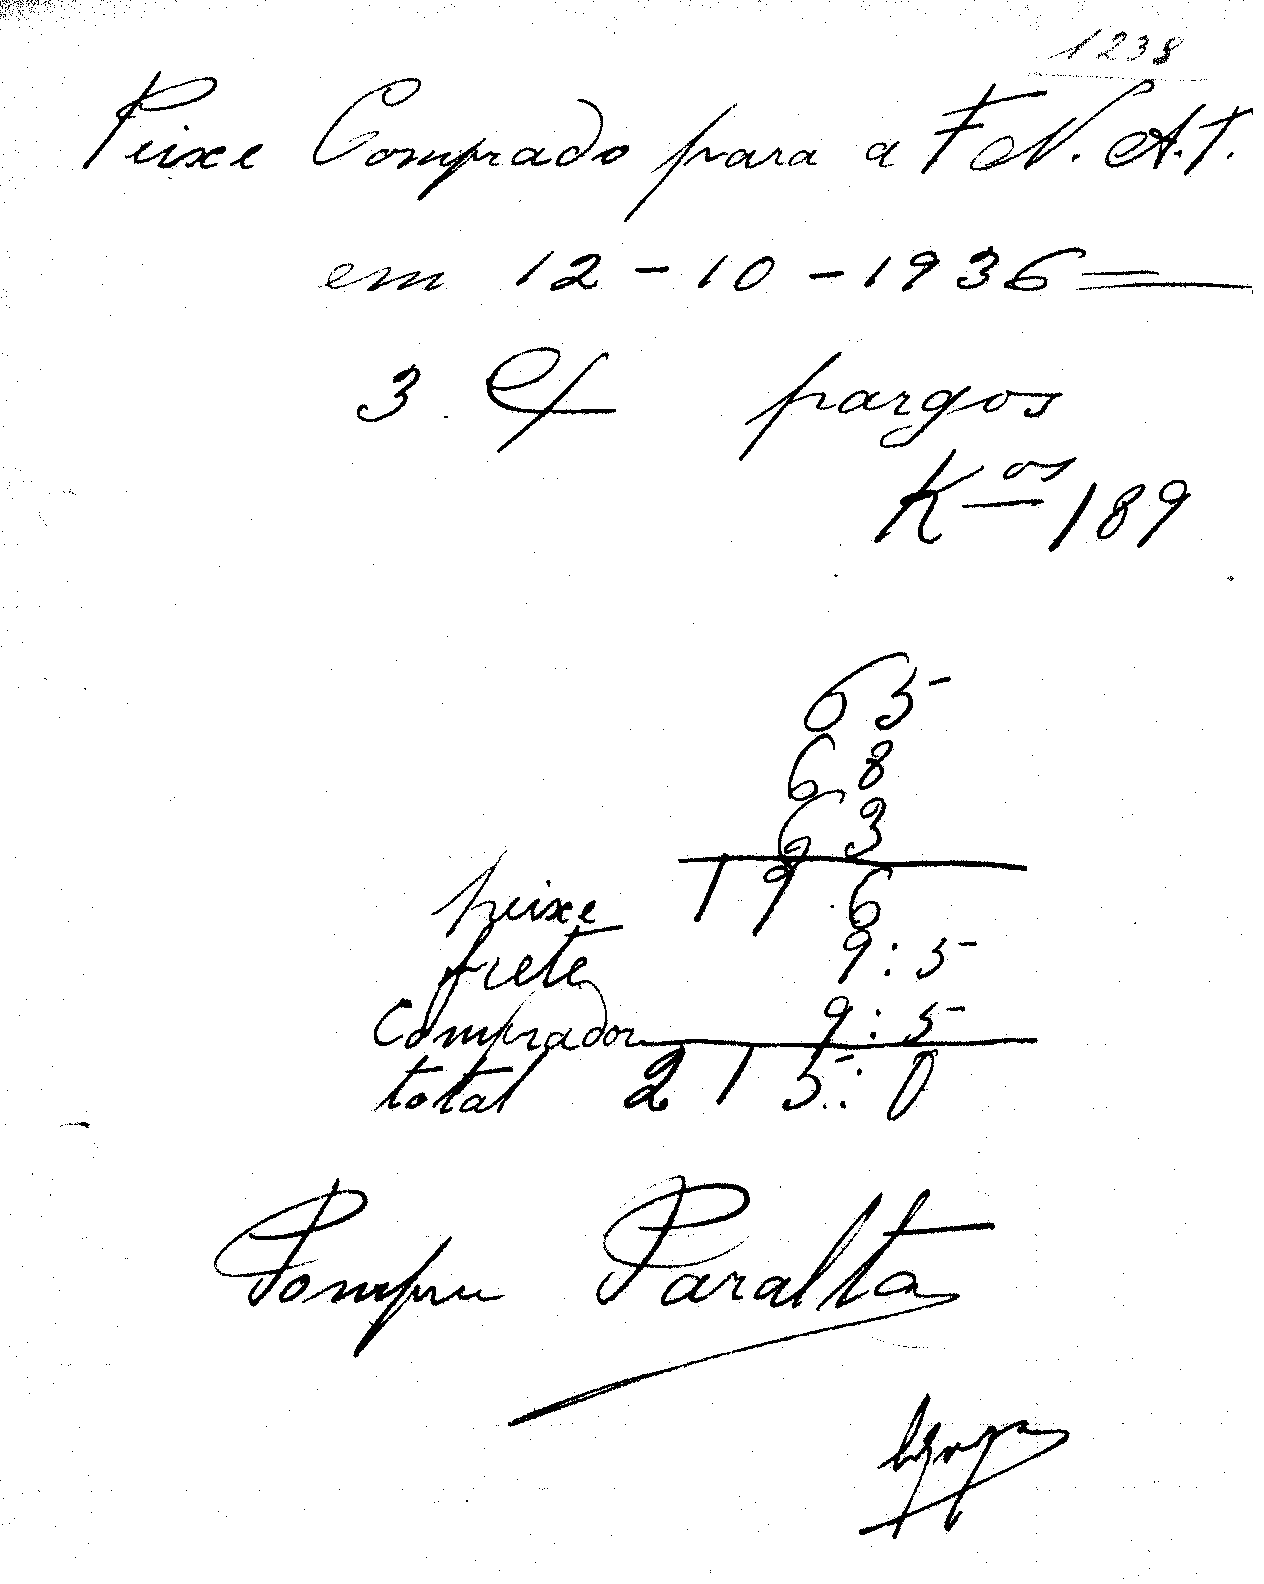 1238
Peixe Comprado para a F.N.A.T.
em 12-10-1936
3 Cx pargos
K os 189
65
68
63
peixe 196
frete 9:5
Comprador 9:5
total 215:0
Pompeu Paralta